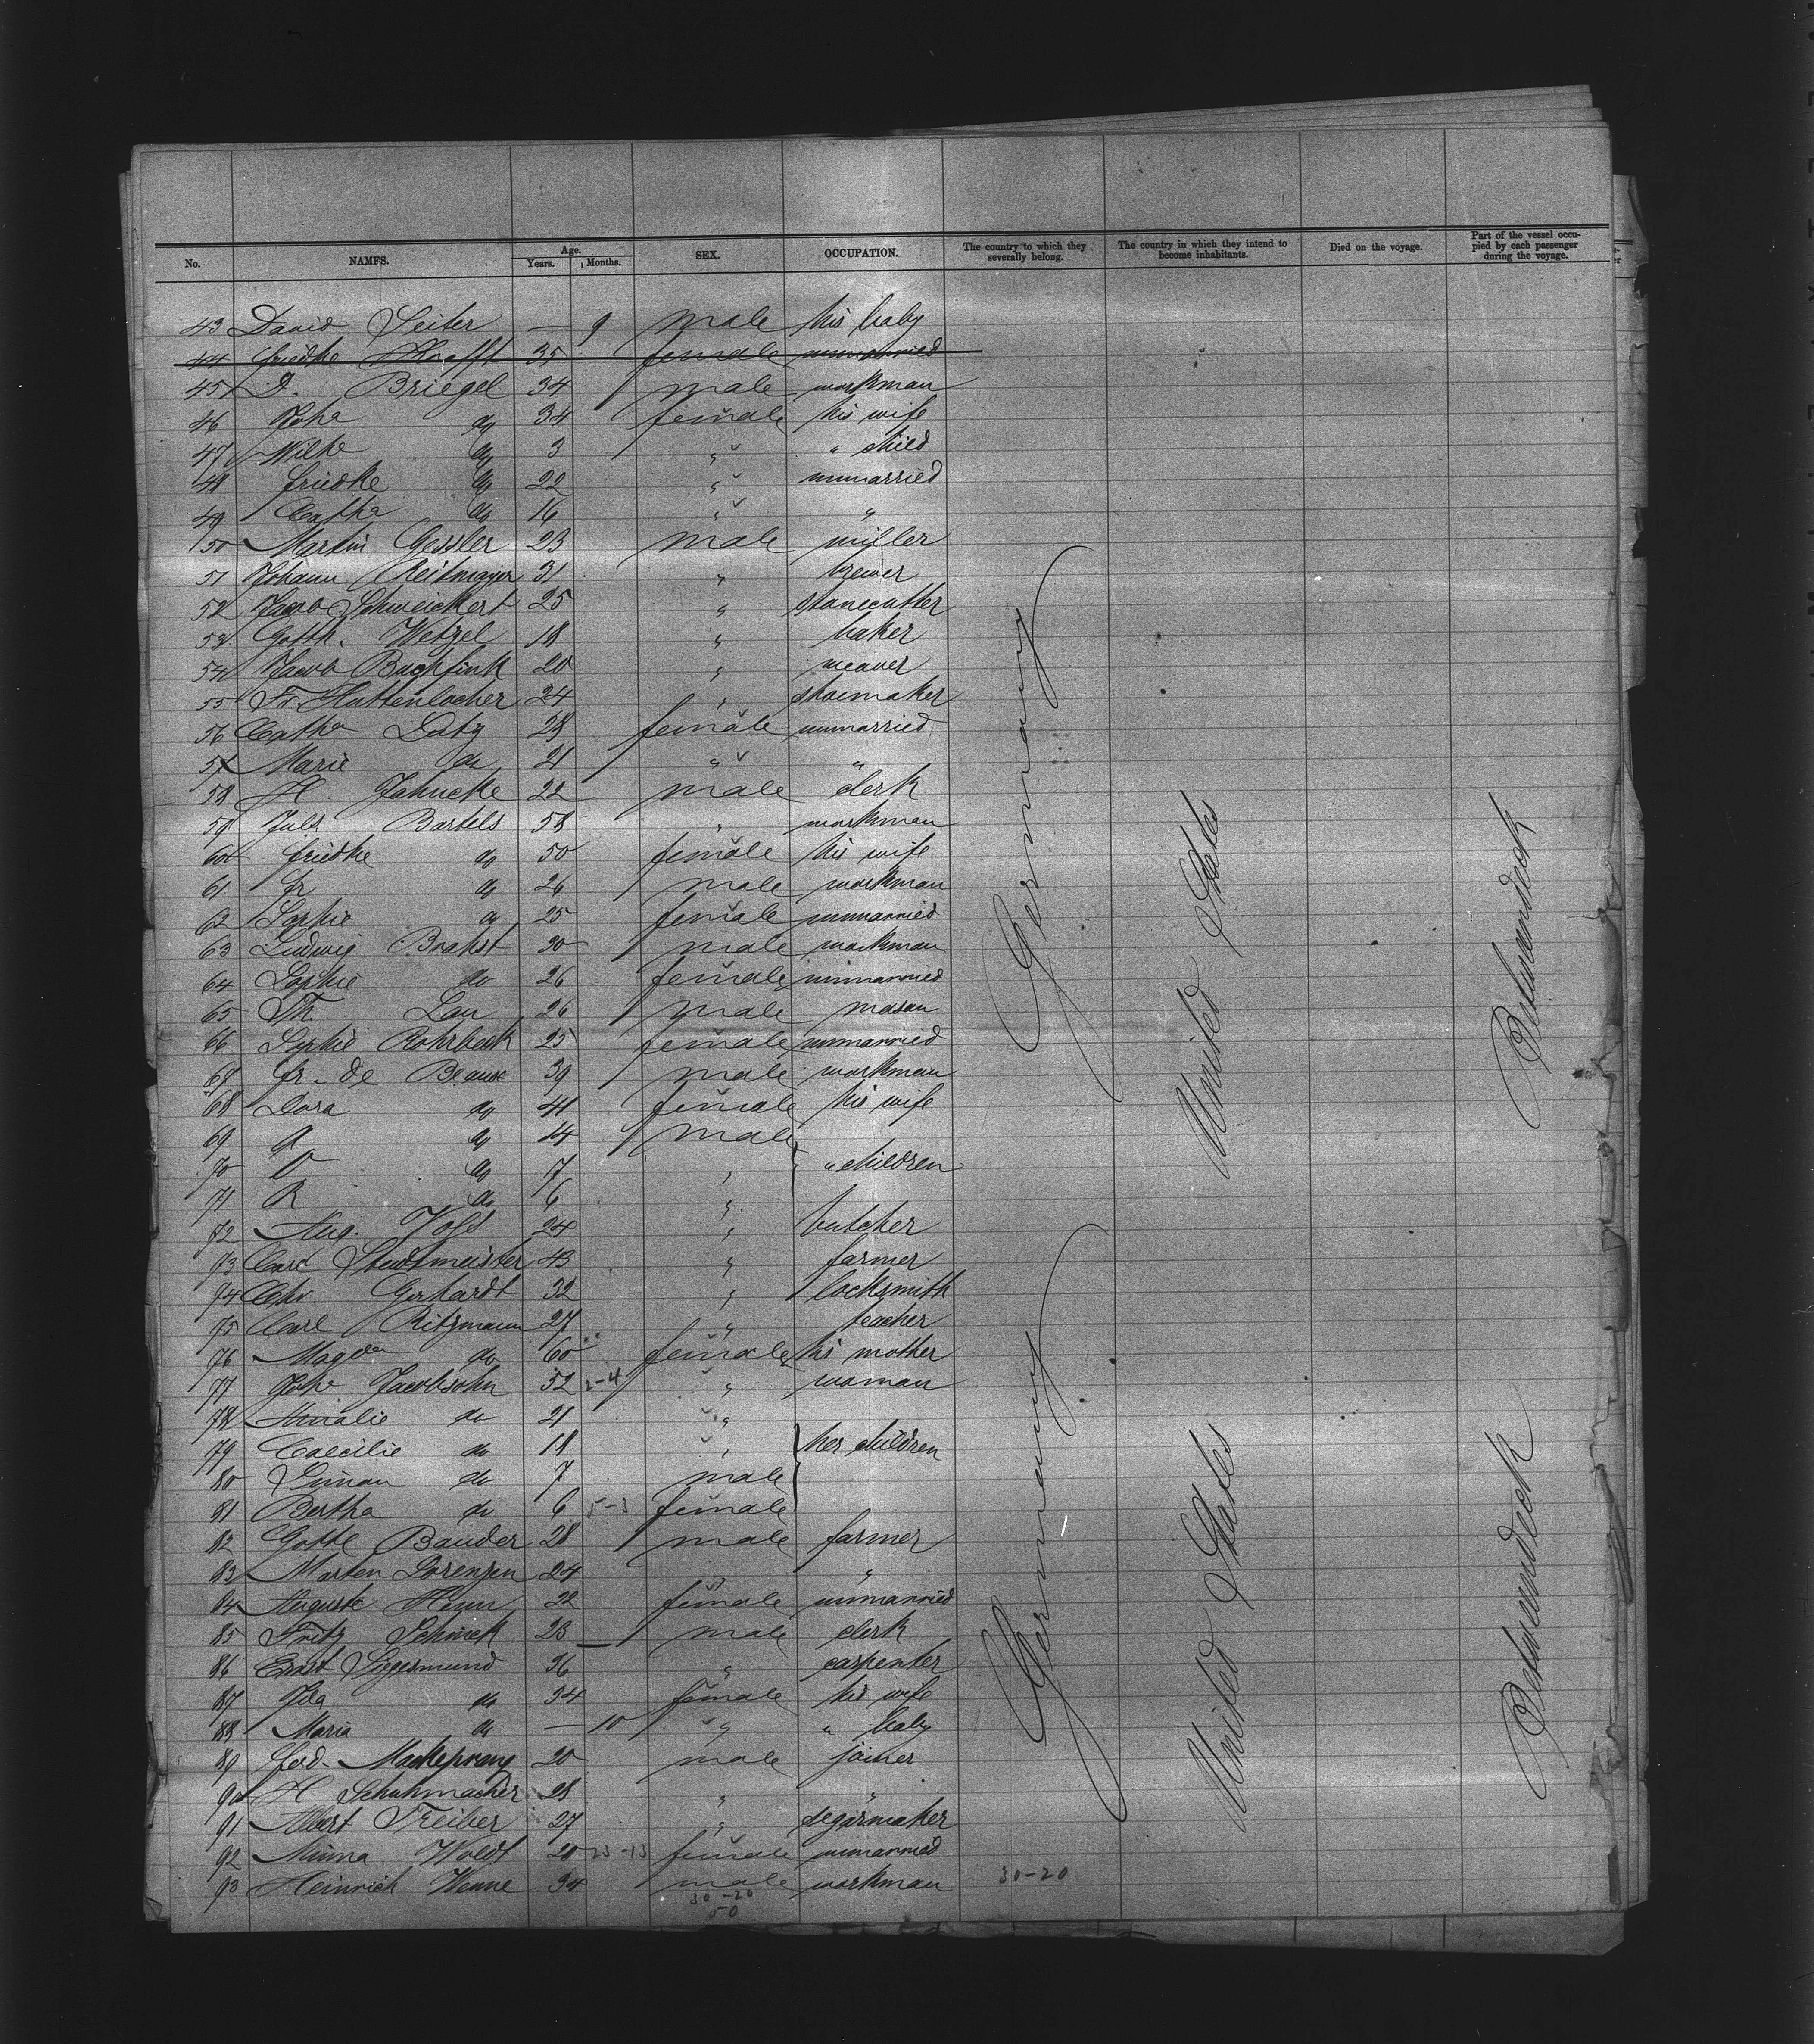 No. NAMES. Age. Years. Months. SEX. OCCUPATION. The country to which they severally belong. The country in which they intend to become inhabitants. Died on the voyage. Part of the vessel occupied by each passenger during the voyage.
43 David Seiter — 9 male his baby
44 Friedke Krafft 35 female unmarried
45 D. Briegel 34 male workman
46 Joha do 34 female his wife
47 Wilhe do 3 " " child
48 Friedke do 22 " unmarried
49 Catha do 16 " "
50 Martin Gessler 23 male miller
51 Johann Reitmayer 31 " brewer
52 Jacob Schweickert 25 " stonecutter
53 Gotth. Wetzel 18 " baker
54 Jacob Buchfink 20 " weaver
55 Fr. Huttenlocher 24 " shoemaker
56 Catha 28 female unmarried
57 Marie do 21 " "
58 H Jahncke 22 male clerk
59 Juls Bartels 58 " workman
60 Friedke do 50 female his wife
61 Fr do 26 male workman
62 Sophie do 25 female unmarried
63 Ludwig Brakst 30 male workman
64 Sophie do 26 female unmarried
65 Th. Lau 26 male mason
66 Sophie Rohrbeck 25 female unmarried
67 Fr. de Beaux 39 male workman
68 Dora do 41 female his wife
69 do 14 male
70 do 7 " " children
71 R do 6 "
72 Aug. Vold 24 " butcher
73 Carl Stuotmeister 43 " farmer
74 Chr Gerhardt 32 " locksmith
75 Carl Ritzmann 27 " teacher
76 Magda do 60 female his mother
77 Johe Jacobsohn 52 2-4 " woman
78 Amalie do 21 "
79 Caecilie do 18 " her children
80 Simon do 7 male
81 Bertha do 6 5-3 female
82 Gottl Bauder 28 male farmer
83 Marten Lorenzen 24 " "
84 Auguste 22 female unmarried
85 Fritz Schinck 23 male clerk
86 Ernst Siegesmund 36 " carpenter
87 do 34 female his wife
88 Maria do — 10 " " baby
89 Ferd. Mackeprang 20 male joiner
90 H Schuhmacher 28 " "
91 Albert Treiber 27 " segarmaker
92 Minna Woldt 20 23-13 female unmarried
93 Heinrich Wenne 34 male workman 30-20
30-20
50
Germany
United States
Betweendeck
Germany
United States
Betweendeck